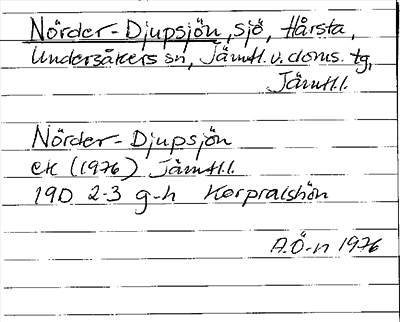 Nörder-Djupsjön, sjö, Hårsta,
Undersåkers sn, Jämtl. v. doms. tg,
Jämtl.l.
Nörder-Djupsjön
ek (1976) Jämtl.l.
19D 2-3 g-h Korpralshön
A.Ö-n 1976